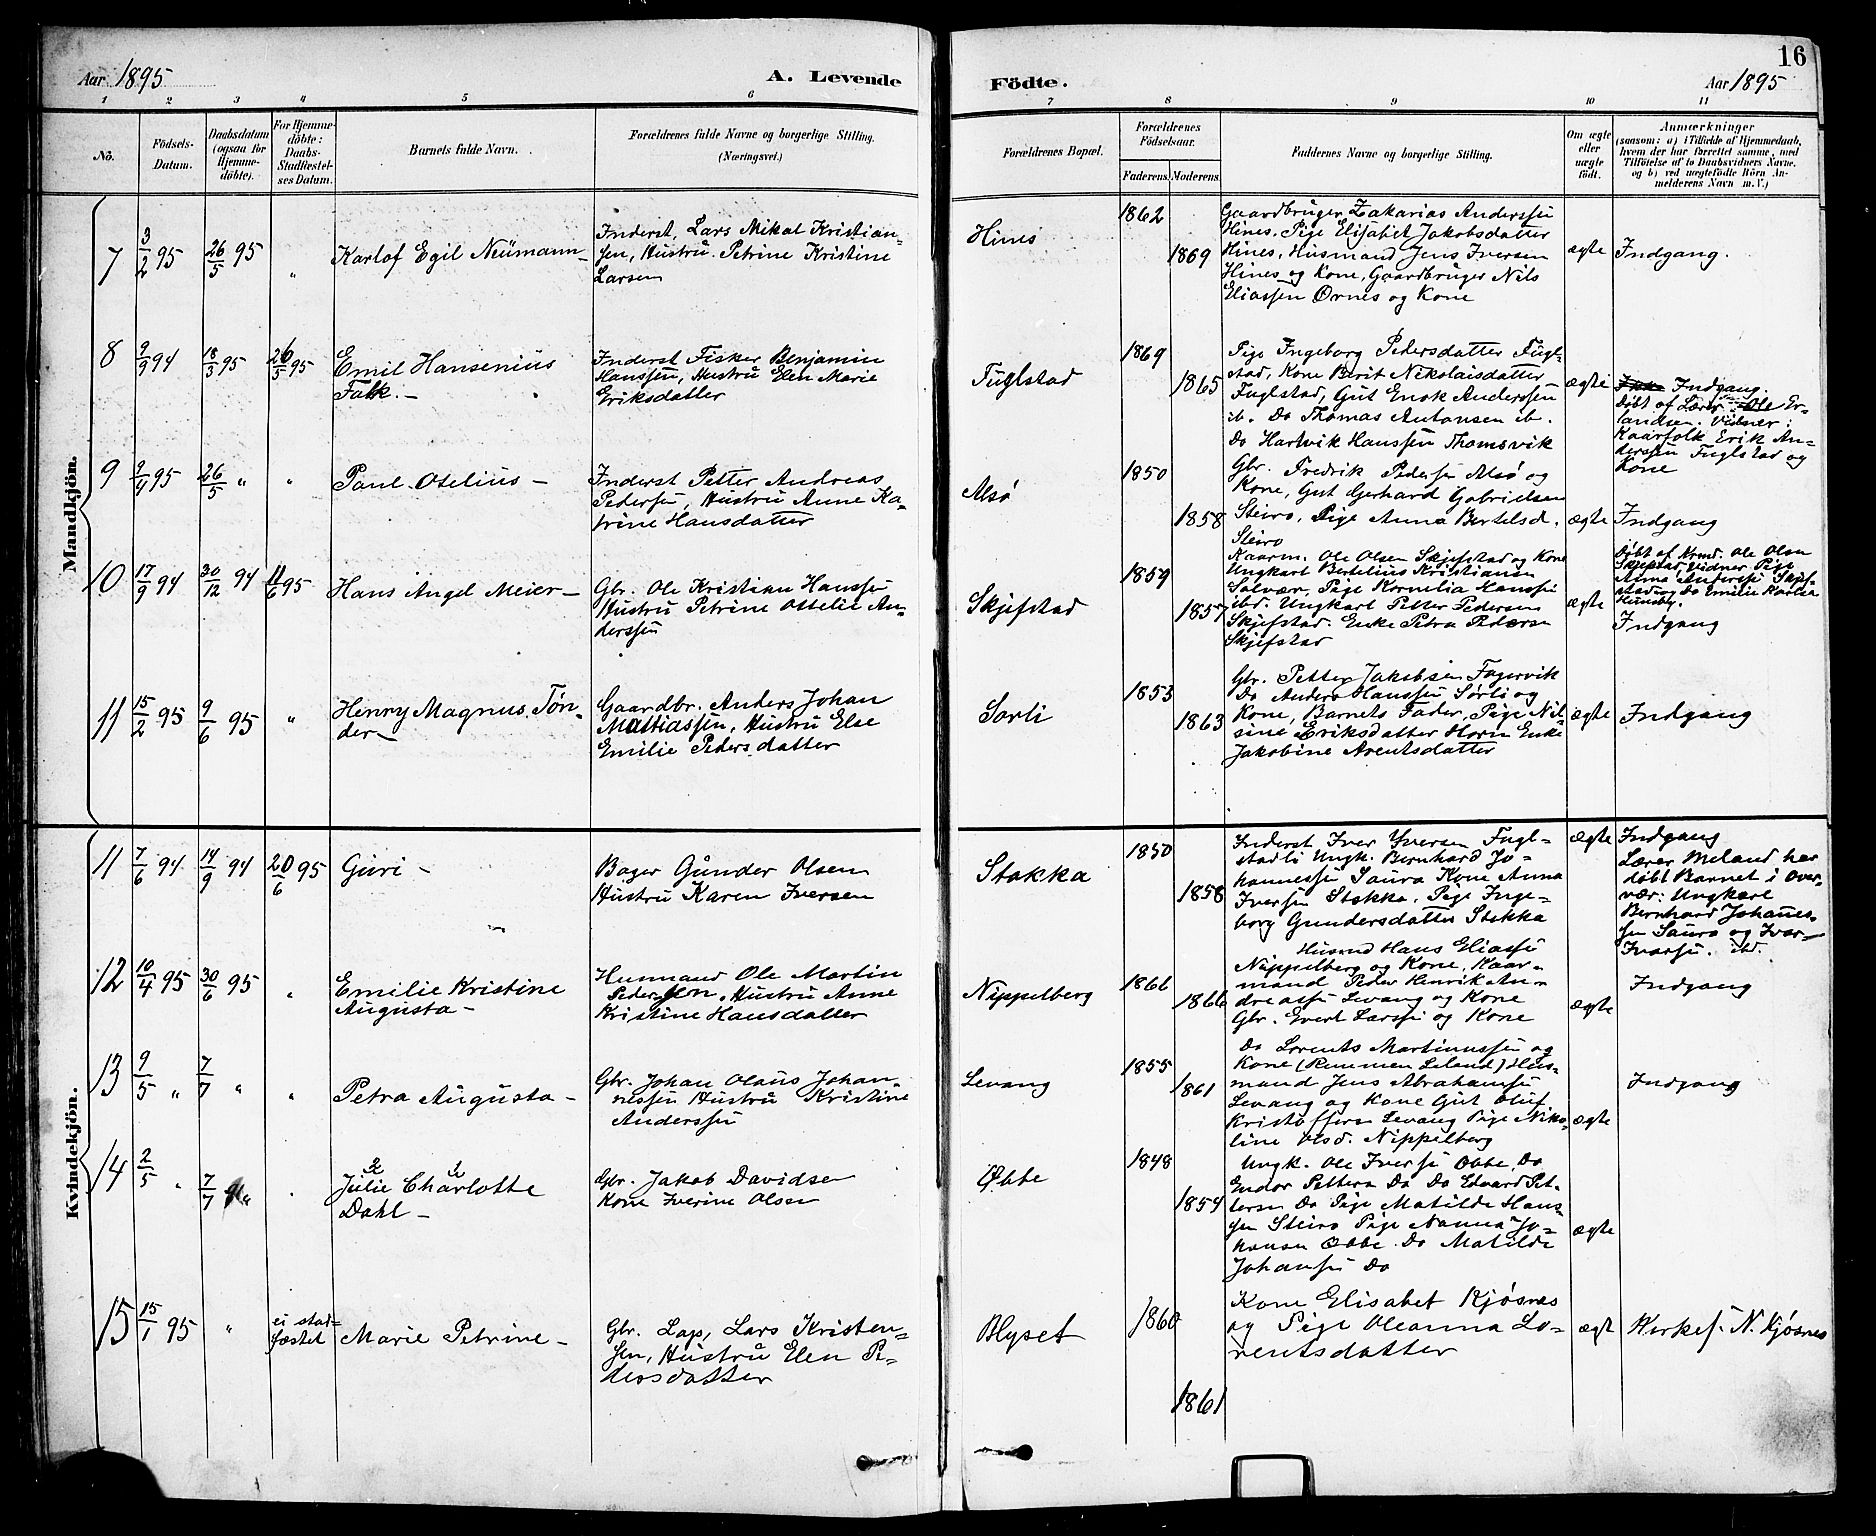 Aar 1895
A. Levende
1 2 3 4 5 6
No.
Födsels-
Datum.
Daabsdatum
(ogsaa for
Hjemme-
döbte).
For Hjemme-
döbte:
Daabs-
Stadfæstel-
ses Datum.
Barnets fulde Navn.
Forældrenes fulde Navne og borgerlige Stilling.
(Næringsvei.)
Mandkjön.
7 3/2 95 26/5 95 "
Karlof Egil Neümann-
Inderst, Lars Mikal Kristian-
sen, Hustru Petrine Kristine
Larsen
8 9/9 94 18/3 95 26/5 95
Emil Hansenius
Falk.-
Inderst Fisker Benjamin
Hanssen, Hustru Elen Marie
Eriksdatter
9 9/4 95 26/5 " "
Paul Otelius -
Inderst Petter Andreas
Pedersen, Hustru Anne Ka-
trine Hansdatter
10 17/9 94 30/12 94 11/6 95
Hans Angel Meier-
Gbr. Ole Kristian Hanssen
Hustru Petrine Ottelie An-
derssen
11 15/2 95 9/6 95 "
Henry Magnus Tøn-
der-
Gaardbr. Anders Johan
Mattiassen, Hustru Else
Emilie Pedersdatter
Kvindekjön.
11 7/6 94 14/9 94 20/6 95
Guri -
Bager Gunder Olsen
Hustru Karen Iversen
12 10/4 95 30/6 95 "
Emilie Kristine
Augusta-
Husmand Ole Martin
Pedersen, Hustru Anne
Kristine Hansdatter
13 9/5 " 7/7 " "
Petra Augusta-
Gbr. Johan Olaus Johan-
nessen Hustru Kristine
Anderssen
14 2/5 " 7/7 " "
2 1
Julie Charlotte
Dahl-
Gbr. Jakob Davidsen
Kone Iverine Olsen
15 15/1 95 "
ei stad-
fæstet
Marie Petrine -
Gbr. Lap, Lars Kristen-
sen, Hustru Elen Pe-
dersdatter
16
Födte.
Aar 1895
7 8 9 10 11
Forældrenes Bopæl.
Forældrenes
Födselsaar.
Faderens. Moderens.
Faddernes Navne og borgerlige Stilling.
Om ægte
eller
uægte
födt.
Anmærkninger
(saasom: a) i Tilfælde af Hjemmedaab,
hvem der har forrettet samme, med
Tilföielse af to Daabsvidners Navne.
og b) ved uægtefödte Börn An-
melderens Navn m. V.)
Hines 1862 1869
Gaardbruger Zakarias Anderssen
Hines, Pige Elisabet Jakobsdatter
Hines, Husmand Jens Iversen
Hines og Kone, Gaardbruger Nils
Eliassen Ørnes og Kone
ægte Indgang.
Fuglstad 1869 1865
Pige Ingeborg Pedersdatter Fugl-
stad, Kone Berit Nikolaisdatter
Fuglstad, Gut Enok Anderssen
ib. Do Thomas Antonsen ib.
Do Hartvik Hanssen Thomsvik
ægte
Indgang.
Døbt af Lærer Ole Er-
landsen. Vidner:
Kaarfolk Erik An-
derssen Fuglstad og
Kone
Alsø 1850 1858
Gbr. Fredrik Pedersen Alsø og
Kone, Gut Gerhard Gabrielsen
Steiro, Pige Anna Bertelsd.
Steiro
ægte Indgang
Skjefstad 1859 1857
Kaarm. Ole Olsen Skjefstad og Kone
Ungkarl Bertelius Kristiansen
Solvær, Pige Kornelia Hanssen
ibd. Ungkarl Petter Pedersen
Skjefstad. Enke Petra Pedersen
Skjefstad
ægte
Døbt af Kmd. Ole Olsen
Skjefstad, Vidner Pige
Anna Anderssen Skjef-
stad og Do Emilie Karlea
Indgang
Sorli 1853 1863
Gbr. Petter Jakobsen Fagervik
Do Anders Hanssen Sørli og
Kone, Barnets Fader, Pige Nil-
sine Eriksdatter Horn Enke
Jakobine Arentsdatter
ægte Indgang
Stokka 1850 1858
Inderst Iver Iversen Fugl-
stadli Ungk. Bernhard Jo-
hannessen Saura Kone Anna
Iversen Stokka, Pige Inge-
borg Gundersdatter Stokka
ægte Indgang
Lærer Meland har
døbt Barnet i Over-
vær: Ungkarl
Bernhard Johannes-
sen Saura og Ivar
Ivarsen. ibd.
Nippelberg 1866 1866
Husmd Hans Eliassen
Nippelberg og Kone, Kaar-
mand Peder Henrik An-
dreassen Levang og Kone
Gbr. Evert Larssen og Kone
ægte Indgang
Levang 1855 1861
Do Lorents Martinussen og
Kone (Remmen Leland) Hus-
mand Jens Abrahamsen
Levang og Kone Gut Oluf
Kristoffersen Levang Pige Niko-
line Olsd. Nippelberg
ægte Indgang
Øbbe 1848 1854
Ungk. Ole Iversen Obbe, Do
Endor Pettersen Do Do Edvard Pet-
tersen Do Pige Matilde Hans-
sen Steiro Pige Nanna Jo-
hansen Obbe Do Matilde
Johansen Do
ægte
Blyset 1860 1861
Kone Elisabet Kjøsnes
og Pige Oleanna Lo-
rentsdatter
ægte Kirkes. N. Kjøsnes